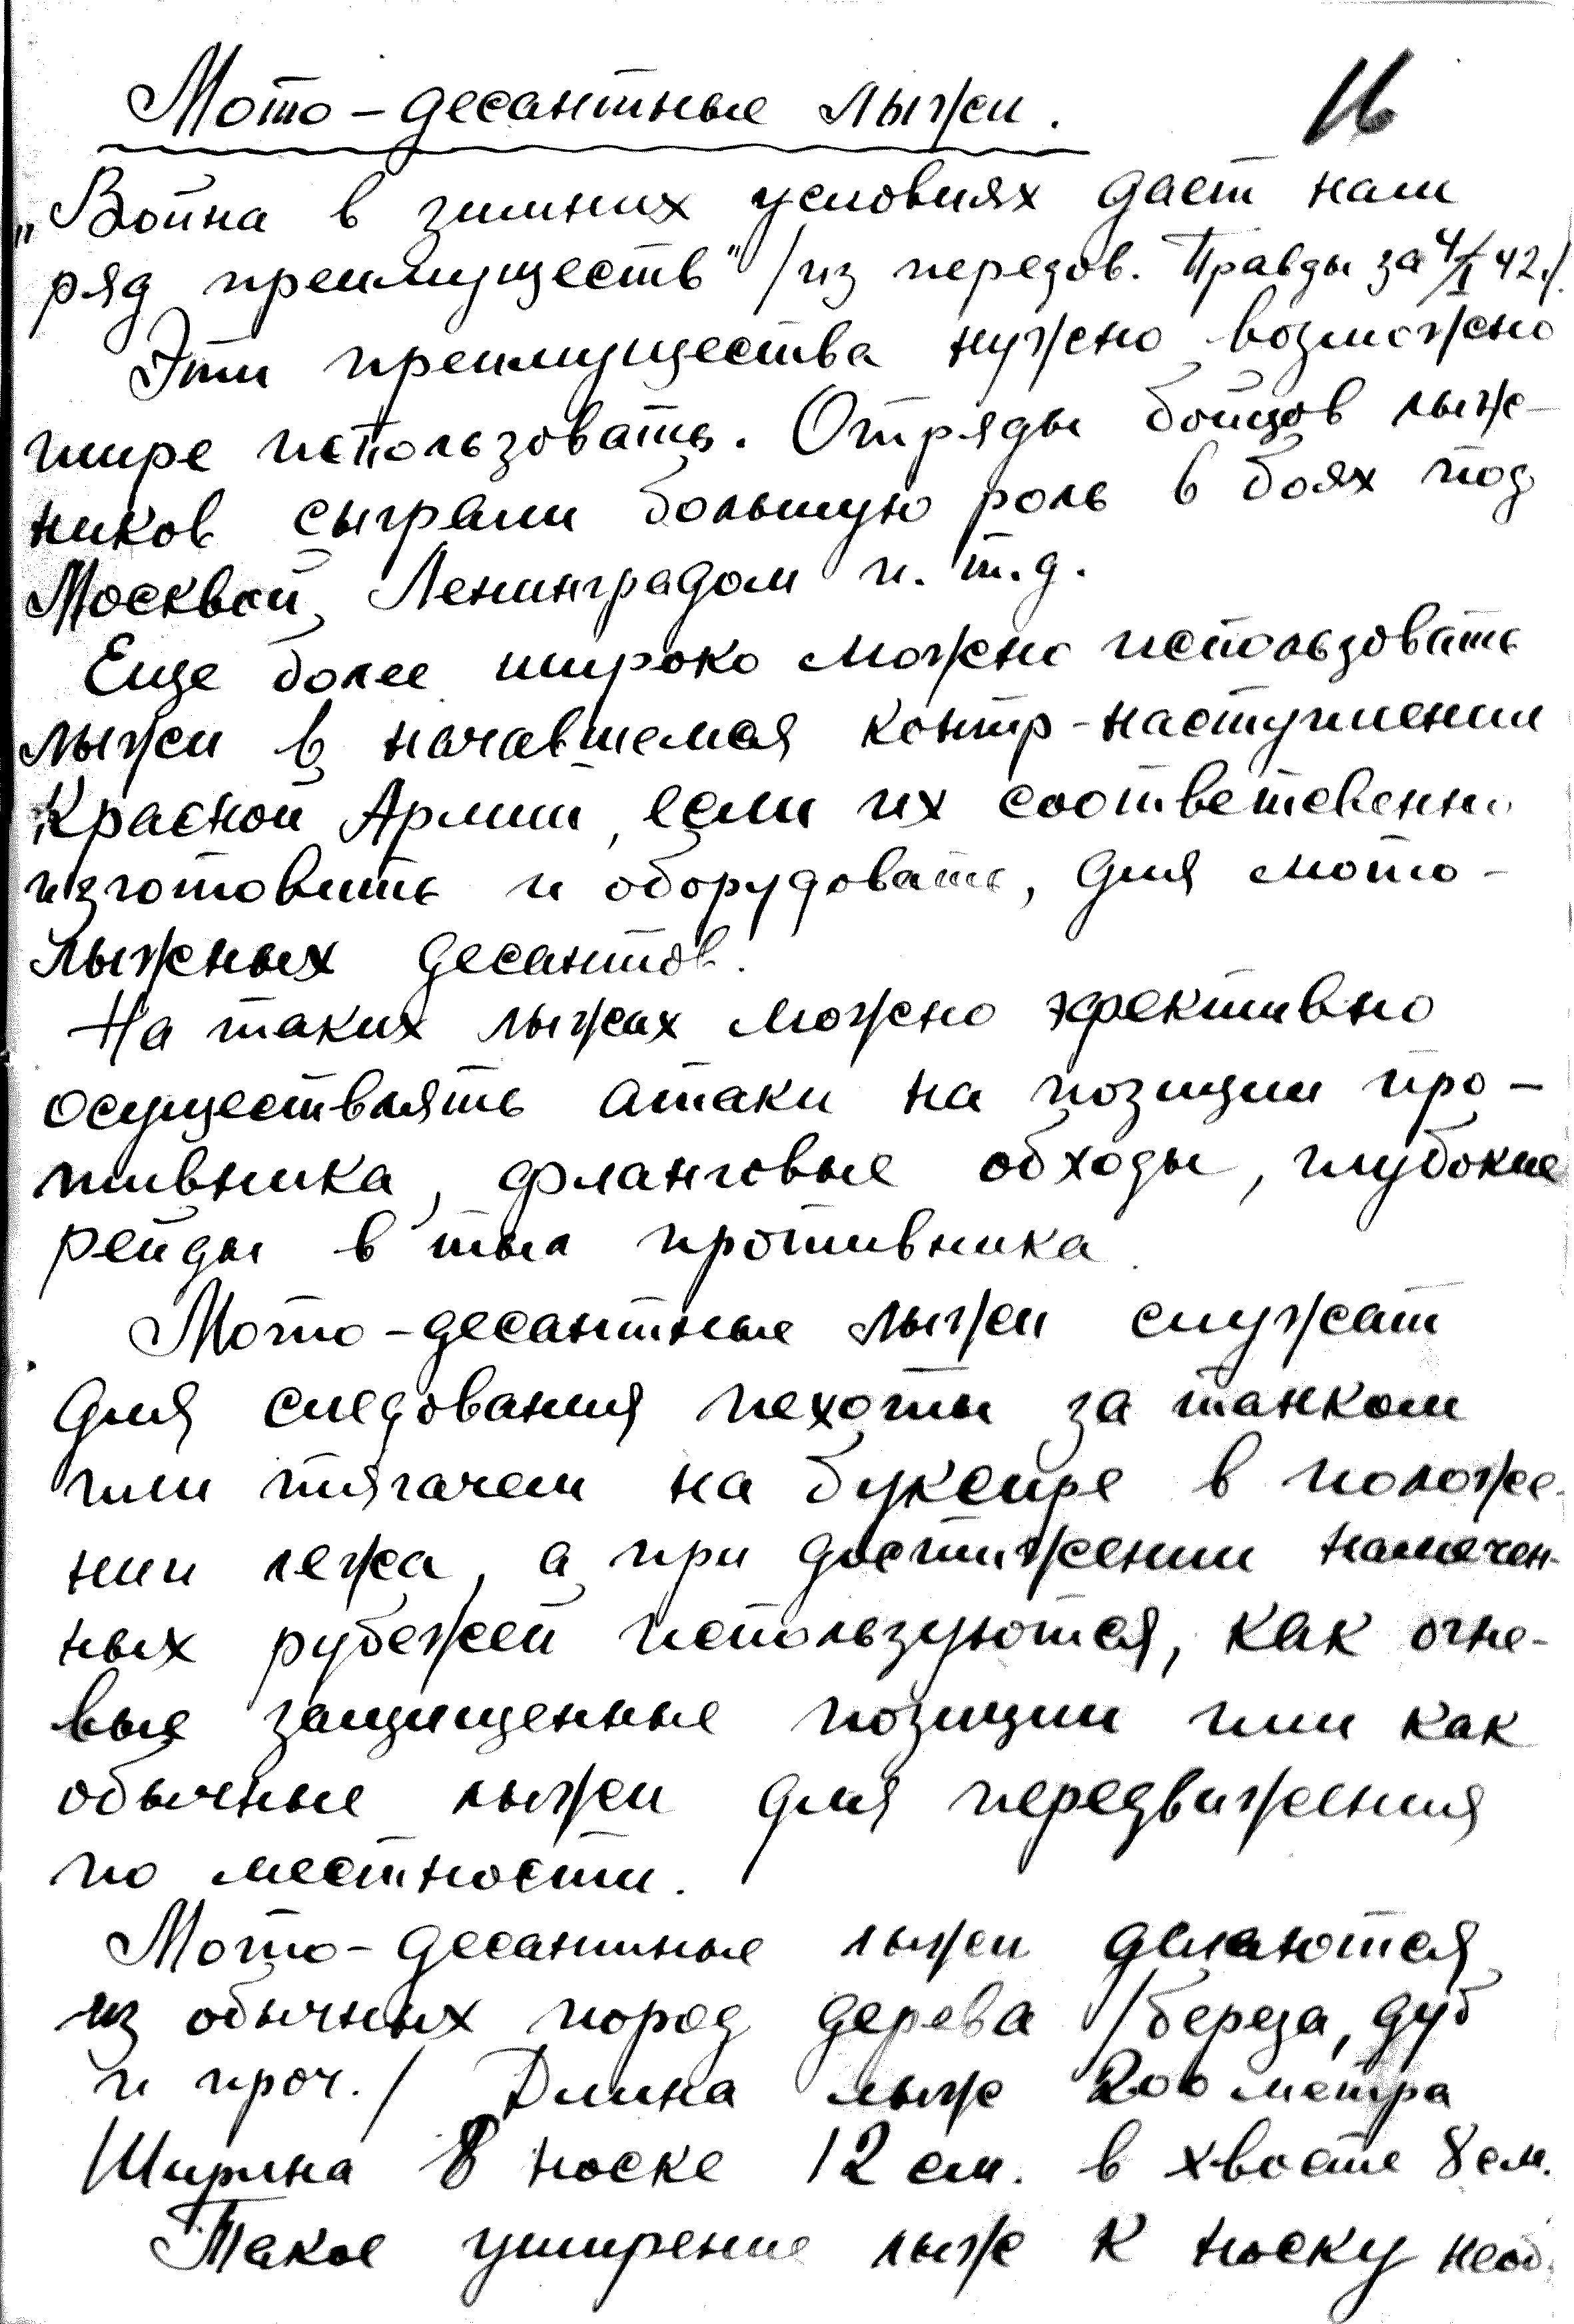 Мото-десантные лыжи. 16
„Война в зимних условиях дает нам
ряд преимуществ" /из передов. Правды за 4/I 42г/.
Эти преимущества нужно возможно
шире использовать. Отряды бойцов лыж-
ников сыграли большую роль в боях под
Москвой, Ленинградом и т.д.
Еще более широко можно использовать
лыжи в начавшемся контр-наступлении
Красной Армии, если их соответственно
изготовить и оборудовать, для мото-
лыжных десантов.
На таких лыжах можно эфективно
осуществлять атаки на позиции про-
тивника, фланговые обходы, глубокие
рейды в тыл противника.
Мото-десантные лыжи служат
для следования пехоты за танком
или тягачем на буксире в положе-
нии лежа, а при достижении намечен-
ных рубежей используются, как огне-
вые защищенные позиции или как
обычные лыжи для передвижения
по местности.
Мото-десантные лыжи делаются
из обычных пород дерева /береза, дуб
и проч./ Длина лыж 2.00 метра
Ширина в носке 12 см. в хвосте 8 см.
Такое уширение лыж к носку необ-